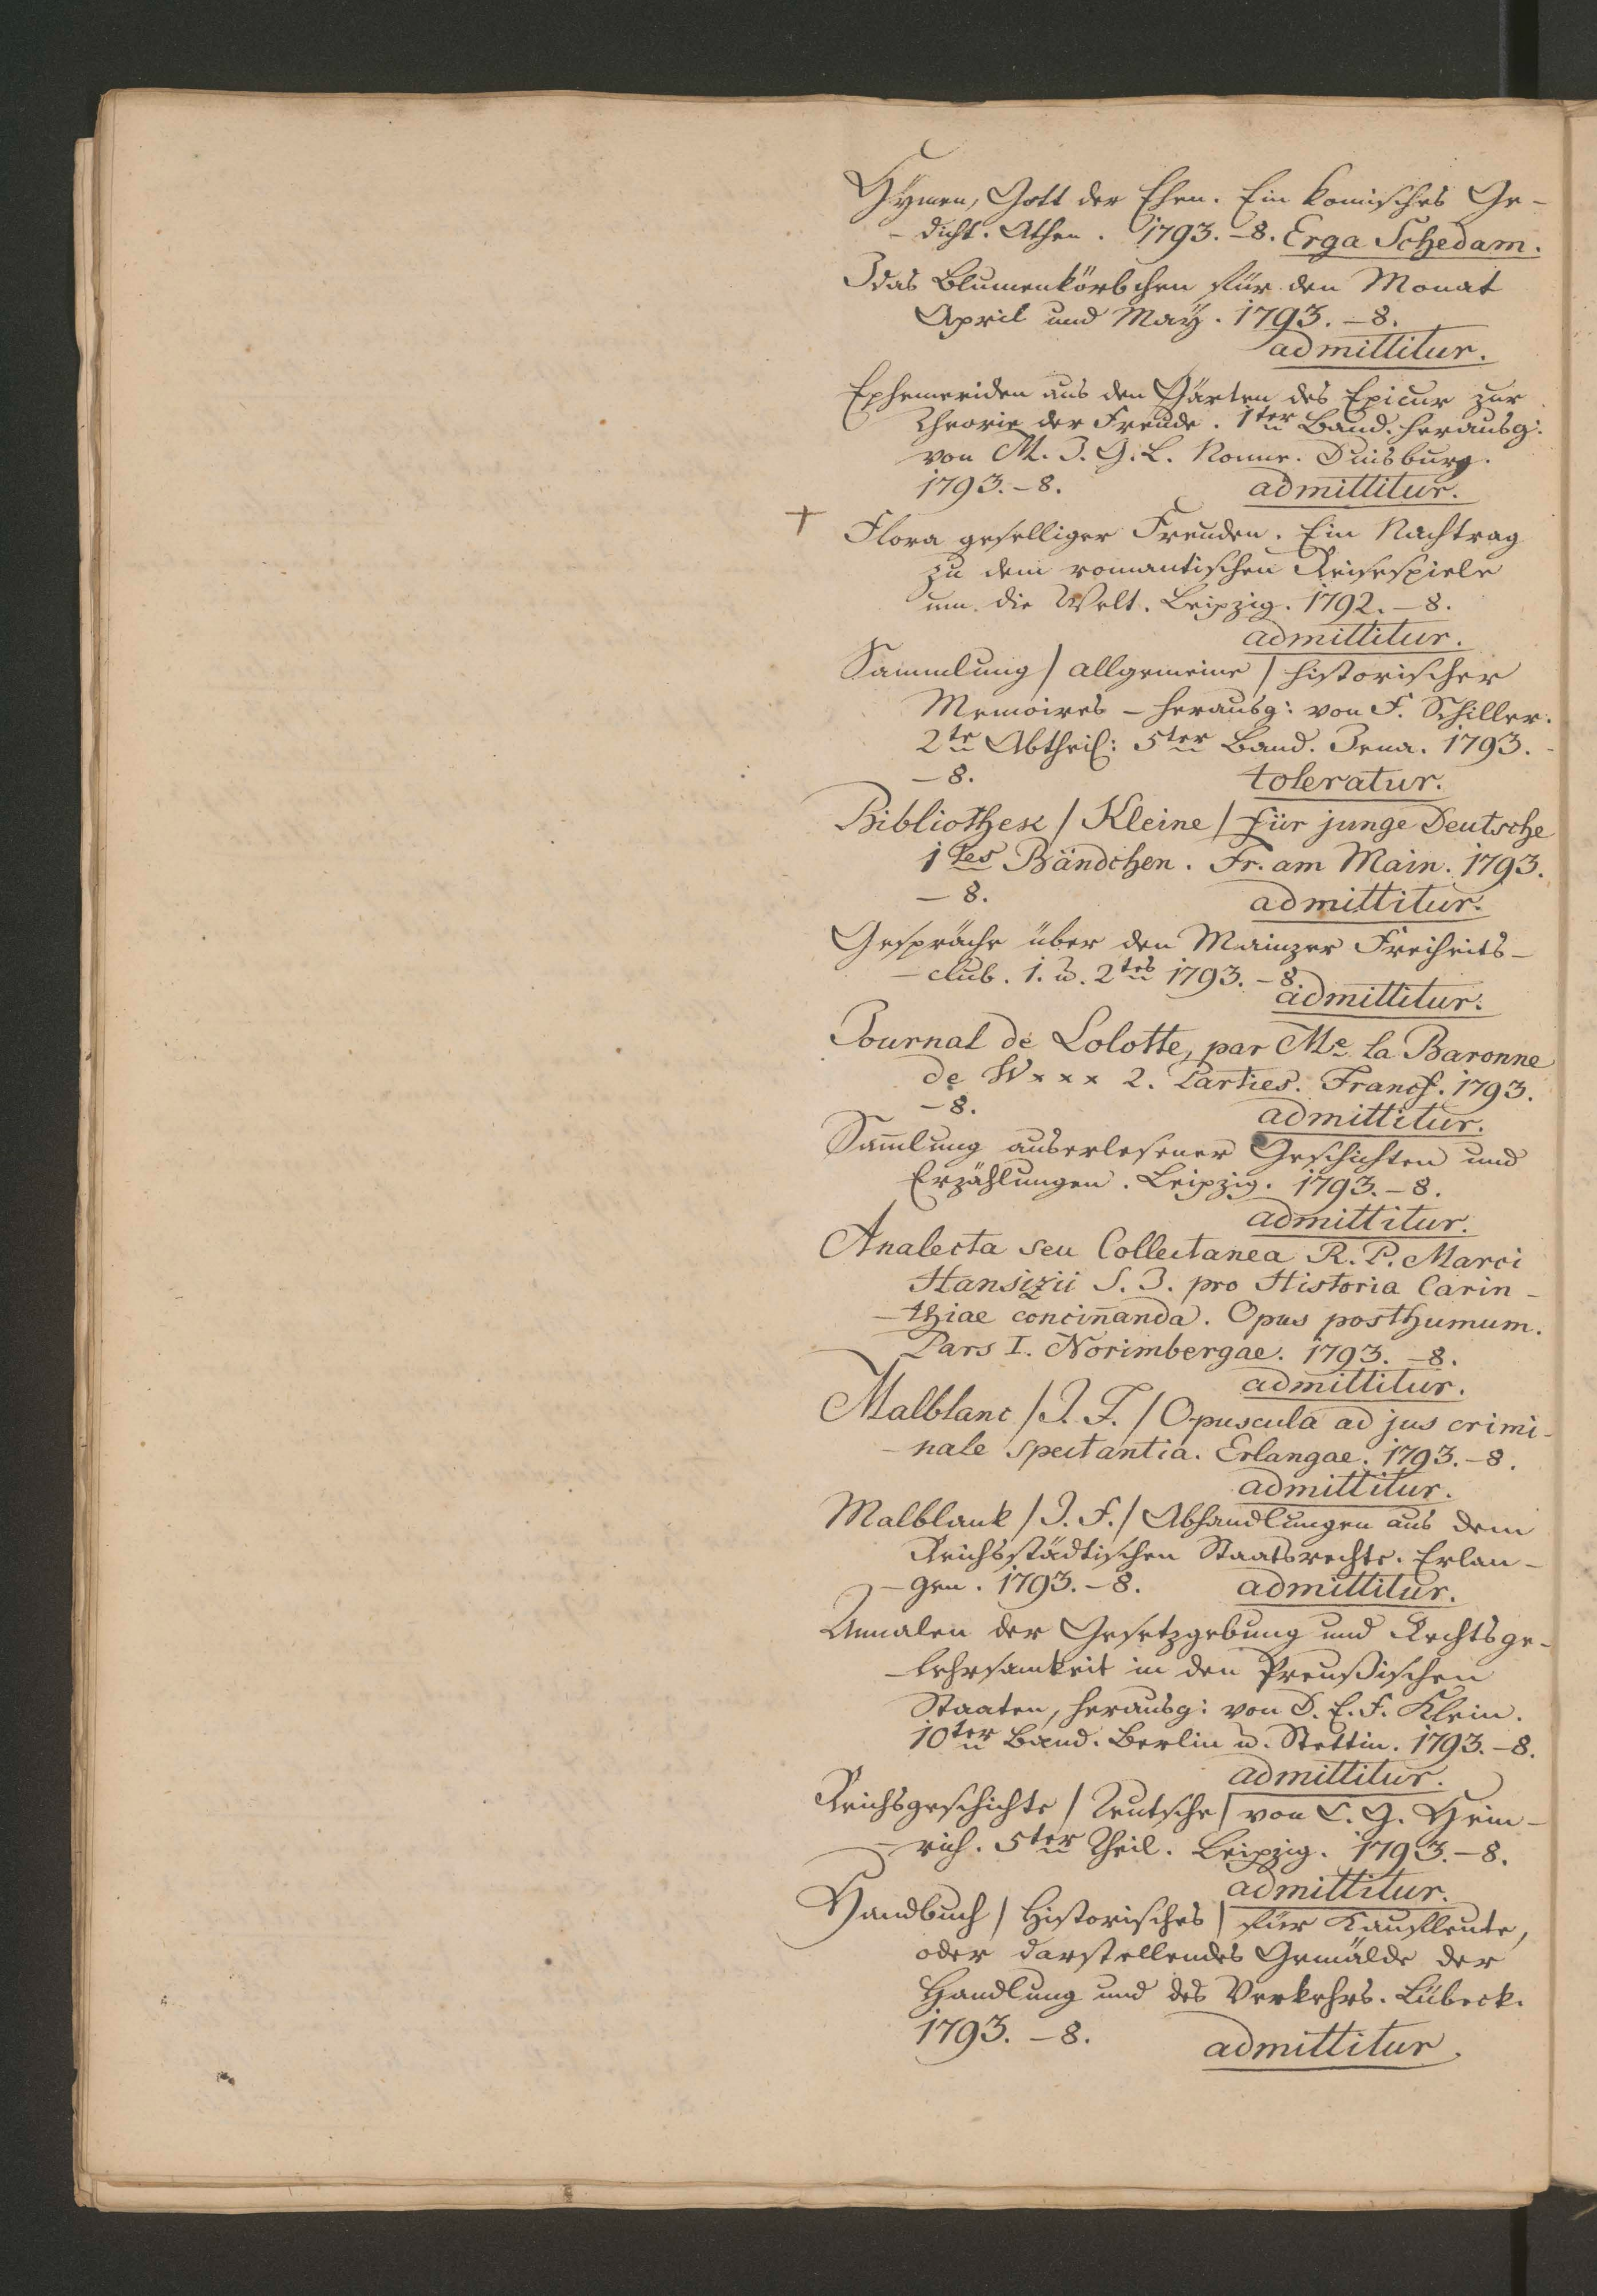 Hÿmen, Gott der Ehen. Ein komisches Ge-
- dicht. Athen. 1793. - 8. Erga Schedam.
Idas Blumenkörbchen für den Monat
April und Maÿ. 1793. - 8.
admittitur.
Ephemeriden aus den Gärten des Epicur zur
Theorie der Freude. 1ter Band. herausg:
von M. J. G. L. Nonne. Duisburg.
1793. - 8. admittitur.
+ Flora geselliger Freuden. Ein Nachtrag
zu dem romantischen Reisespiele
um die Welt. Leipzig. 1792. - 8.
admittitur.
Sammlung / allgemeine / historischer
Memoires - herausg: von F. Schiller.
2te Abtheil: 5ter Band. Jena. 1793.
- 8. toleratur.
Bibliothek / Kleine / für junge Deutsche
1tes Bändchen. Fr. am Main. 1793.
- 8. admittitur.
Gespräche über den Mainzer Freiheits-
- club. 1. u. 2tes 1793. - 8.
admittitur.
Journal de Lolotte, par Me la Baronne
de W x x x 2. Parties. Francf. 1793.
- 8. admittitur.
Sam̄lung auserlesener Geschichten und
Erzählungen. Leipzig. 1793. - 8.
admittitur.
Analecta seu Collectanea R. P. Marci
Hansizii S. J. pro Historia Carin-
- thiae concin̄anda. Opus posthumum.
Pars I. Norimbergae. 1793. - 8.
admittitur.
Malblanc / J. F. / Opuscula ad jus crimi-
- nale spectantia. Erlangae. 1793. - 8.
admittitur.
Malblank / J. F. / Abhandlungen aus dem
Reichsstädtischen Staatsrechte. Erlan-
- gen. 1793. - 8. admittitur.
Annalen der Gesetzgebung und Rechtsge-
- lehrsamkeit in den Preußischen
Staaten, herausg: von D. E. F. Klein.
10ter Band. Berlin u. Stettin. 1793. - 8.
admittitur.
Reichsgeschichte / Teutsche / von C. G. Hein-
- rich. 5ter Theil. Leipzig. 1793. - 8.
admittitur.
Handbuch / Historisches / für Kaufleute,
oder darstellendes Gemälde der
Handlung und des Verkehrs. Lübeck.
1793. - 8. admittitur.